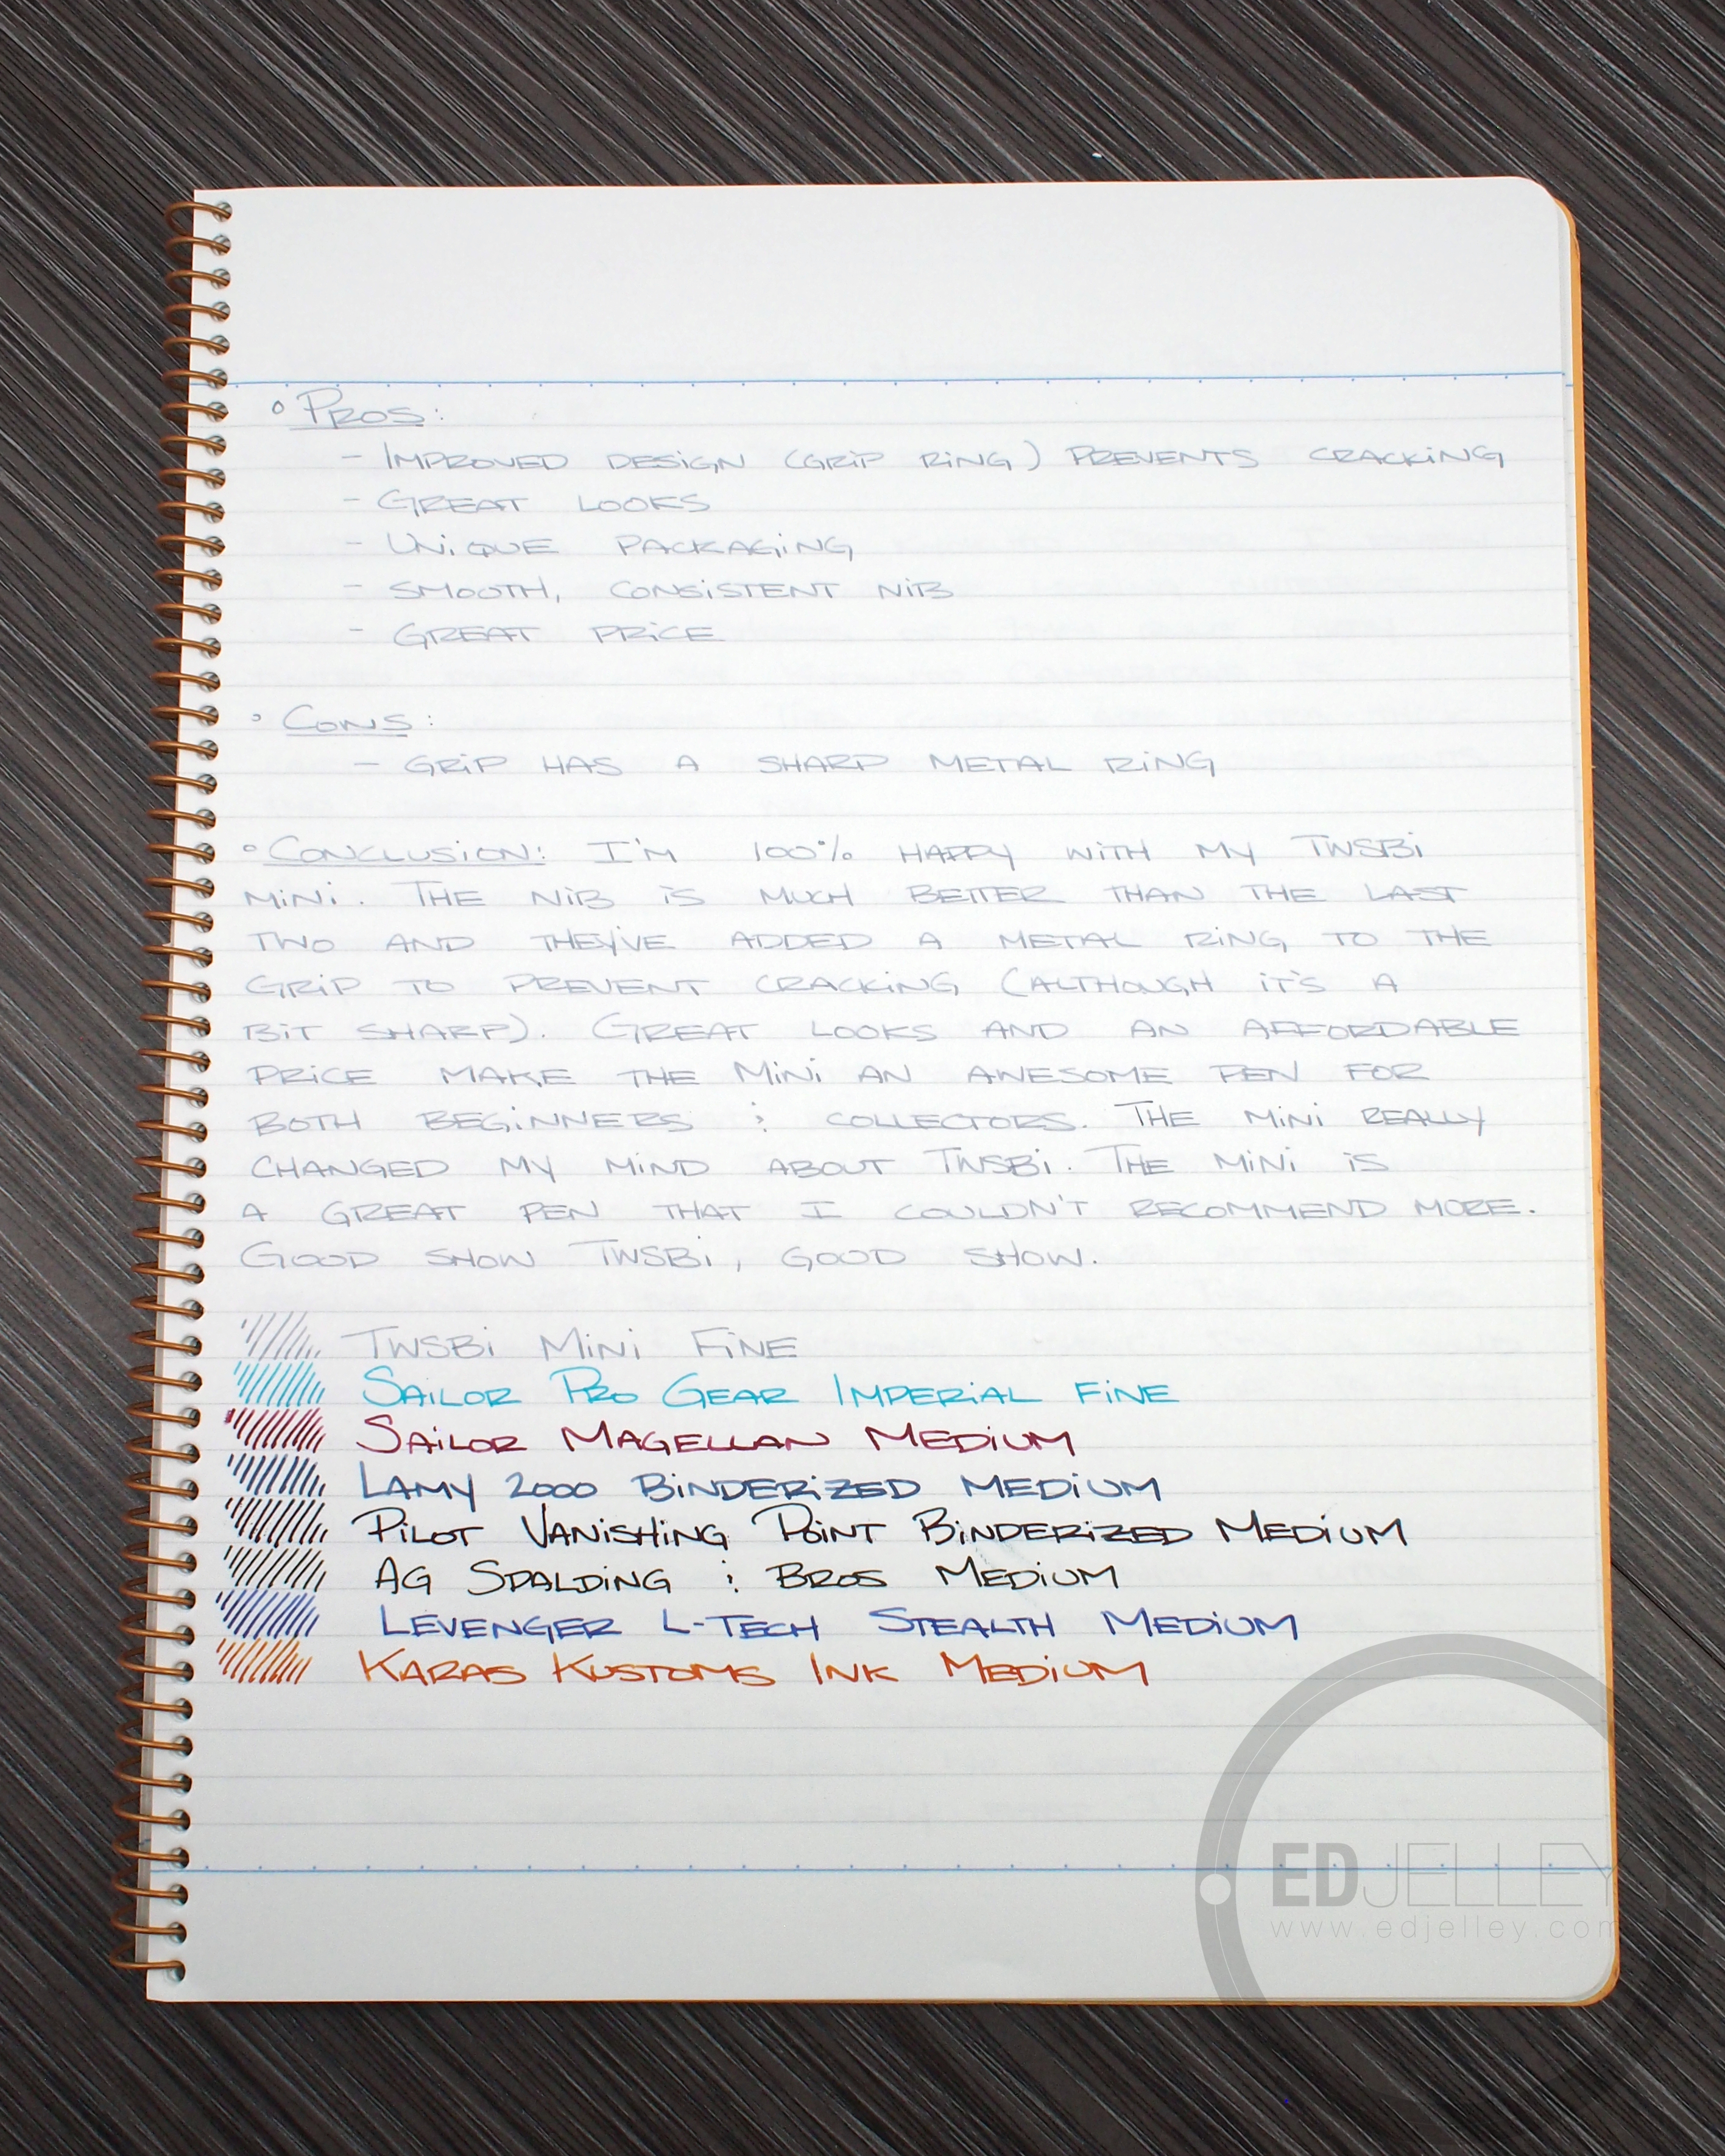 ° Pros:
- Improved design (grip ring) prevents cracking
- Great looks
- Unique packaging
- Smooth, consistent nib
- Great price
° Cons:
- Grip has a sharp metal ring
° Conclusion: I'm 100% happy with my TWSBi
Mini. The nib is much better than the last
two and they've added a metal ring to the
grip to prevent cracking (although it's a
bit sharp). Great looks and an affordable
price make the Mini an awesome pen for
both beginners & collectors. The Mini really
changed my mind about TWSBi. The Mini is
a great pen that I couldn't recommend more.
Good show TWSBi, good show.
TWSBi Mini Fine
Sailor Pro Gear Imperial Fine
Sailor Magellan Medium
Lamy 2000 Binderized Medium
Pilot Vanishing Point Binderized Medium
AG Spalding & Bros Medium
Levenger L-Tech Stealth Medium
Karas Kustoms Ink Medium
EDJELLEY
www.edjelley.com